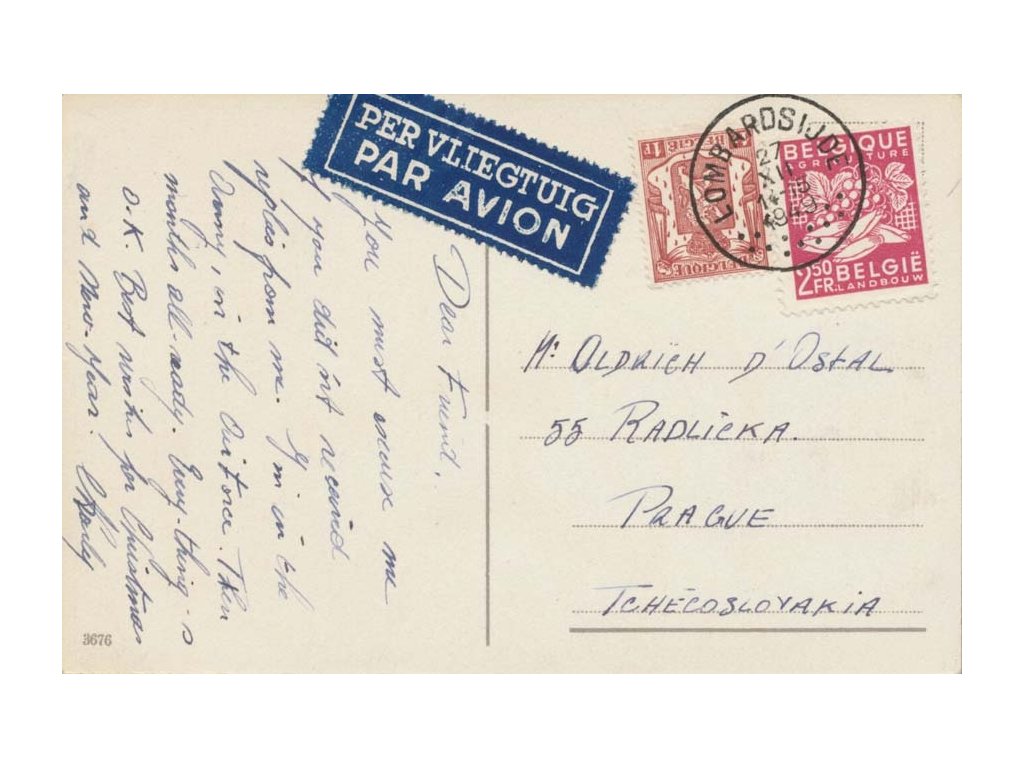 PER VLIEGTUIG
PAR AVION
1F
BELGIQUE
LOMBARDSIJDE
27
XII
1949
BELGIQUE
AGRICULTURE
2,50 BELGIË
FR. LANDBOUW
Dear Friend.
You must excuse me
if you did'nt received
replies from me. I'm in the
Army, in the Then
months all-ready. Every-thing is
O.K. Best wishes for Christmas
and New-Year! Charly
Mr OLDRICH D'OSTAL
55 RADLICKA.
PRAGUE
TCHÉCOSLOVAKIA
3676